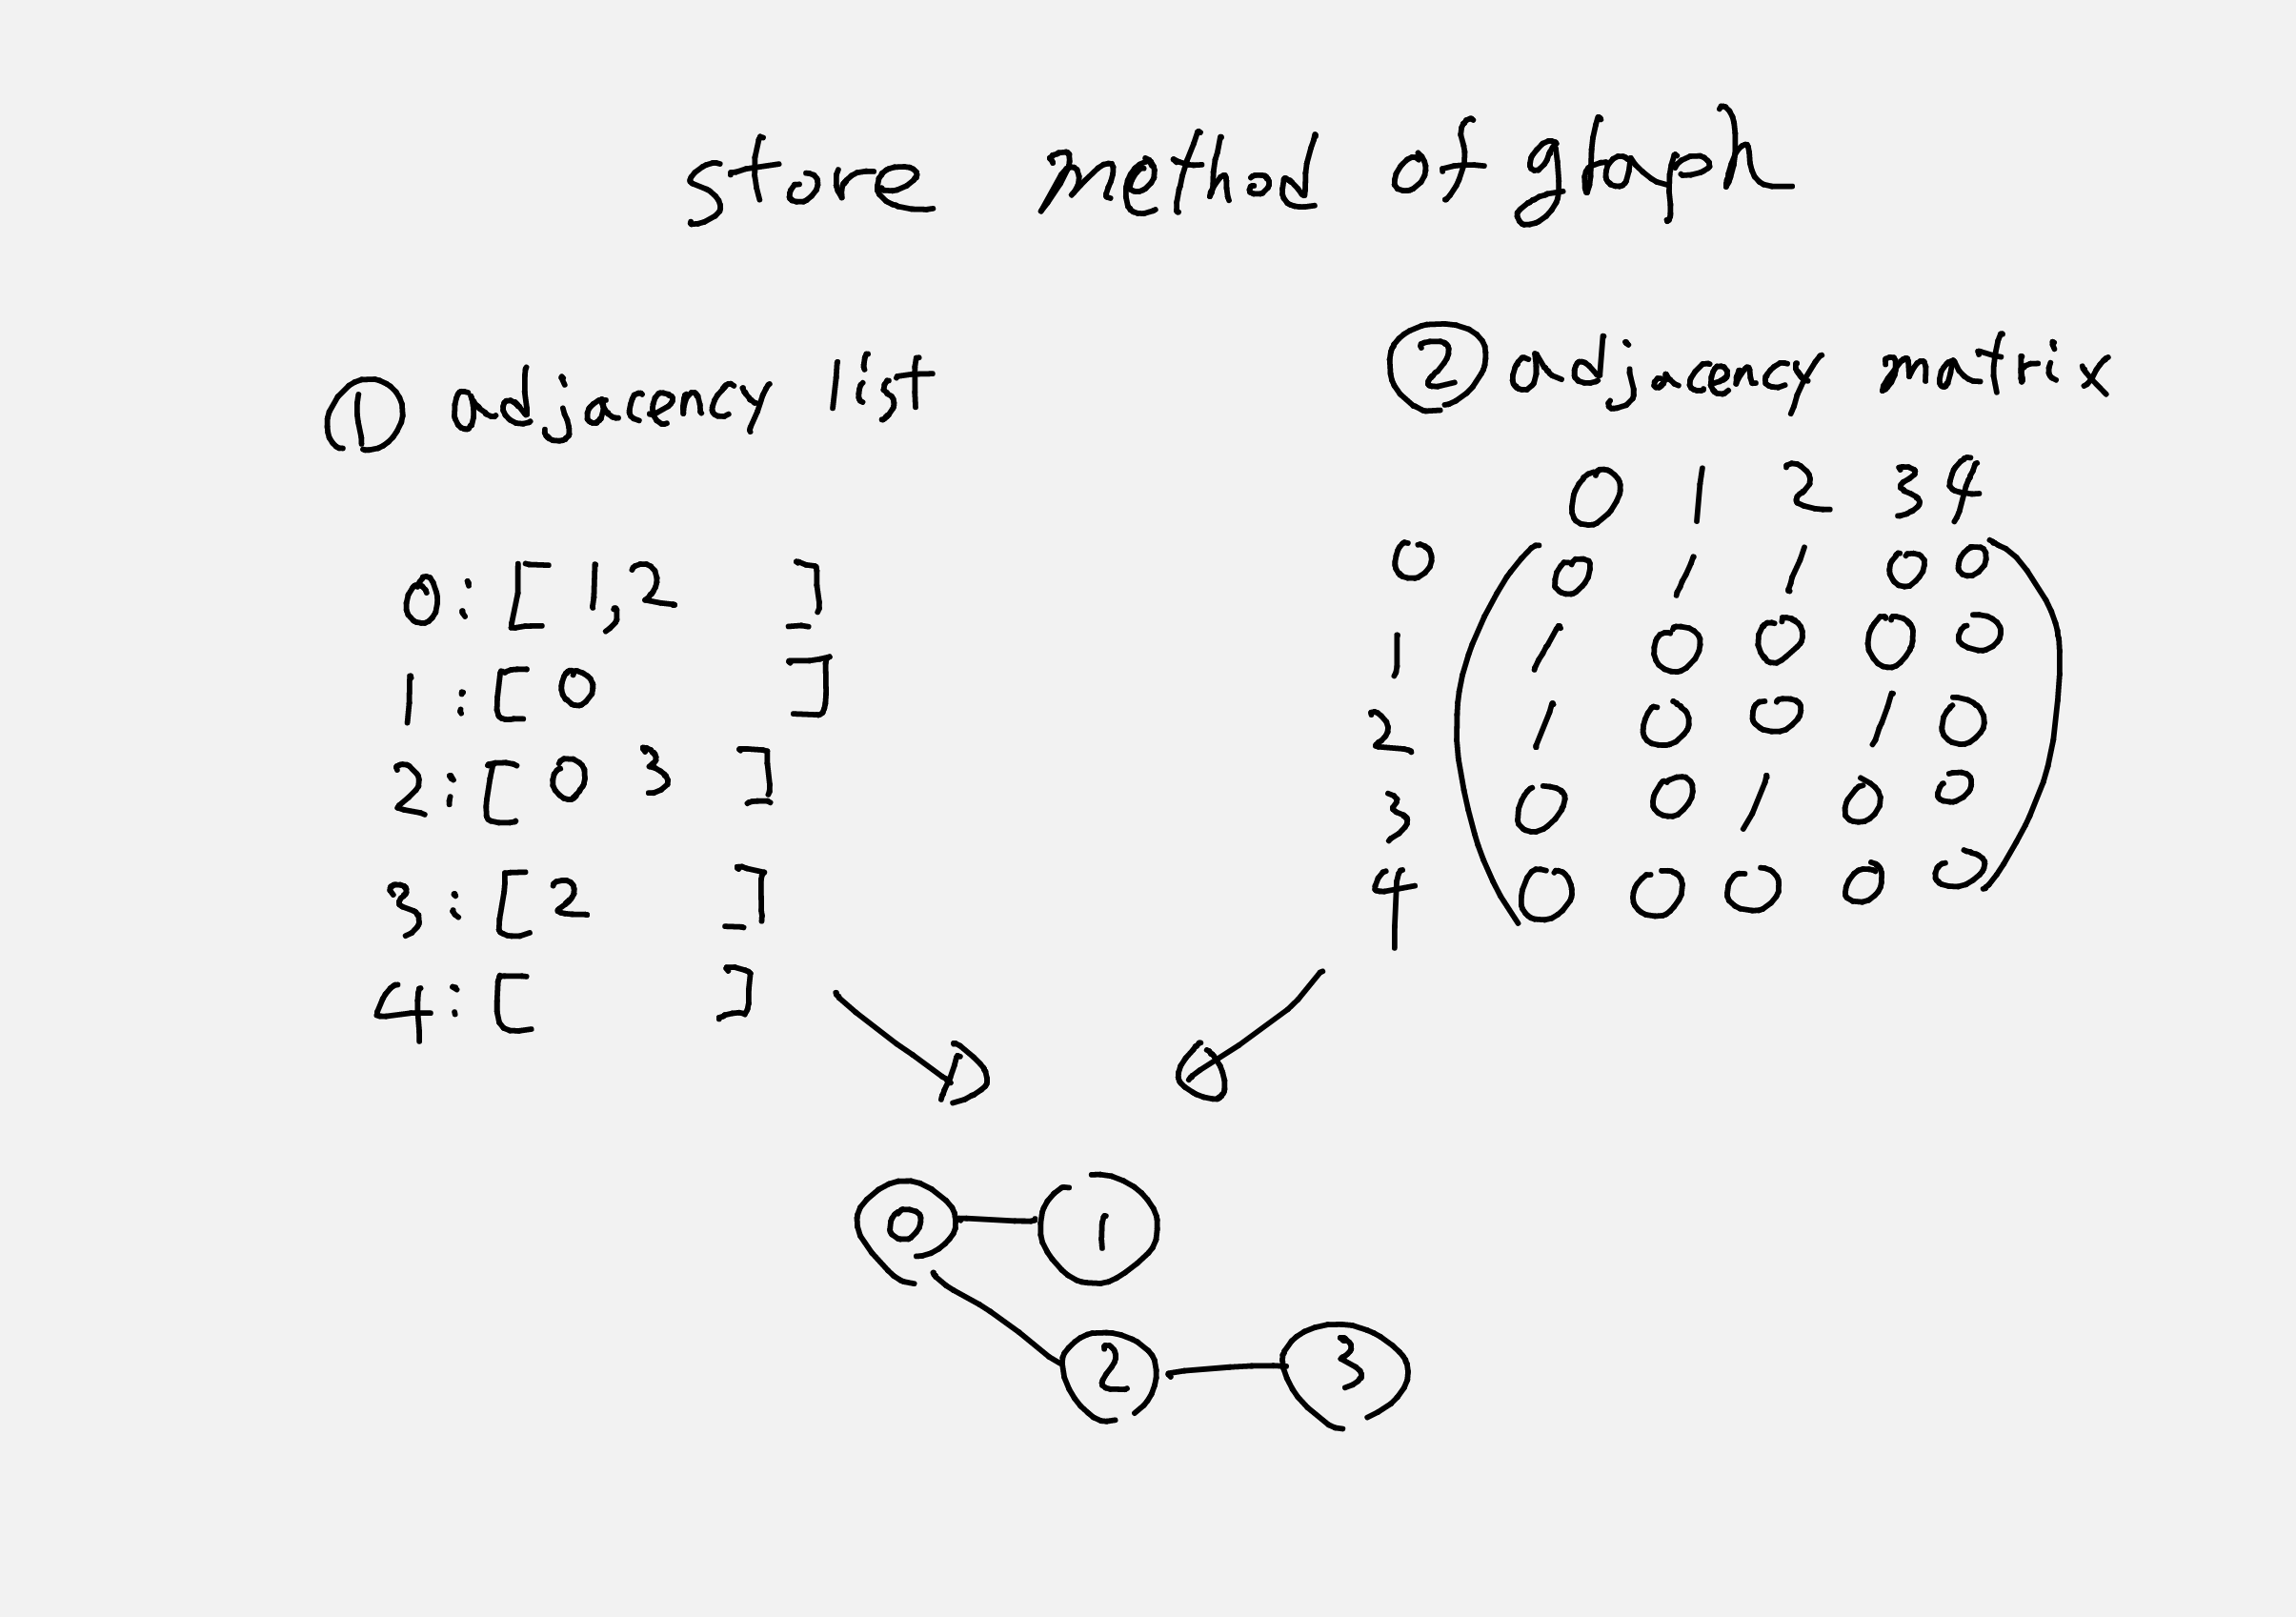 store method of graph
① adjacency list
0: [ 1,2 ]
1: [ 0 ]
2: [ 0 3 ]
3: [ 2 ]
4: [ ]
② adjacency matrix
0 1 2 3 4
0 ( 0 1 1 0 0 )
1 1 0 0 0 0
2 1 0 0 1 0
3 0 0 1 0 0
4 0 0 0 0 0
0 1
2 3